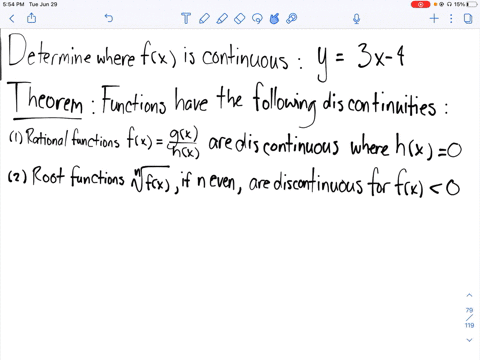 5:54 PM Tue Jun 29
15%
Determine where f(x) is continuous : y = 3x-4
Theorem : Functions have the following discontinuities :
(1) Rational functions f(x) = g(x)/h(x) are discontinuous where h(x) = 0
(2) Root functions ⁿ√f(x), if n even, are discontinuous for f(x) < 0
79
/
119